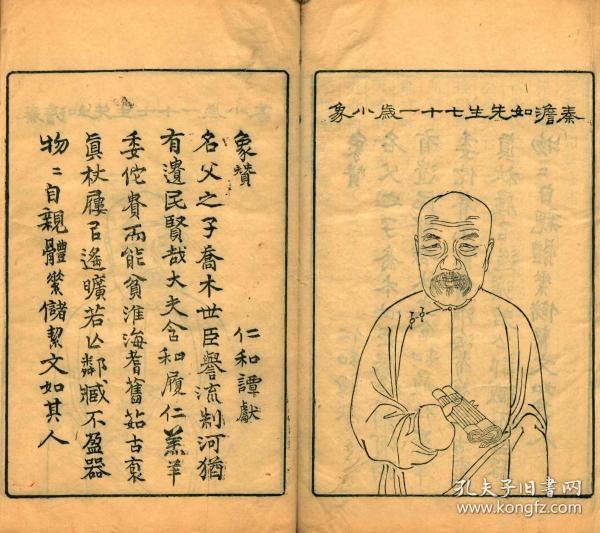 秦澹如先生七十一歲小象
象贊 仁和譚獻
名父之子喬木世臣譽流淛河猶
有遺民賢哉大夫含和履仁羔羊
委佗貴而能貧淮海耆舊茹古裒
眞杖屨召遙曠若亾鄰臧不盈器
物〻自親體素儲絜文如其人
孔夫子旧书网
www.kongfz.com